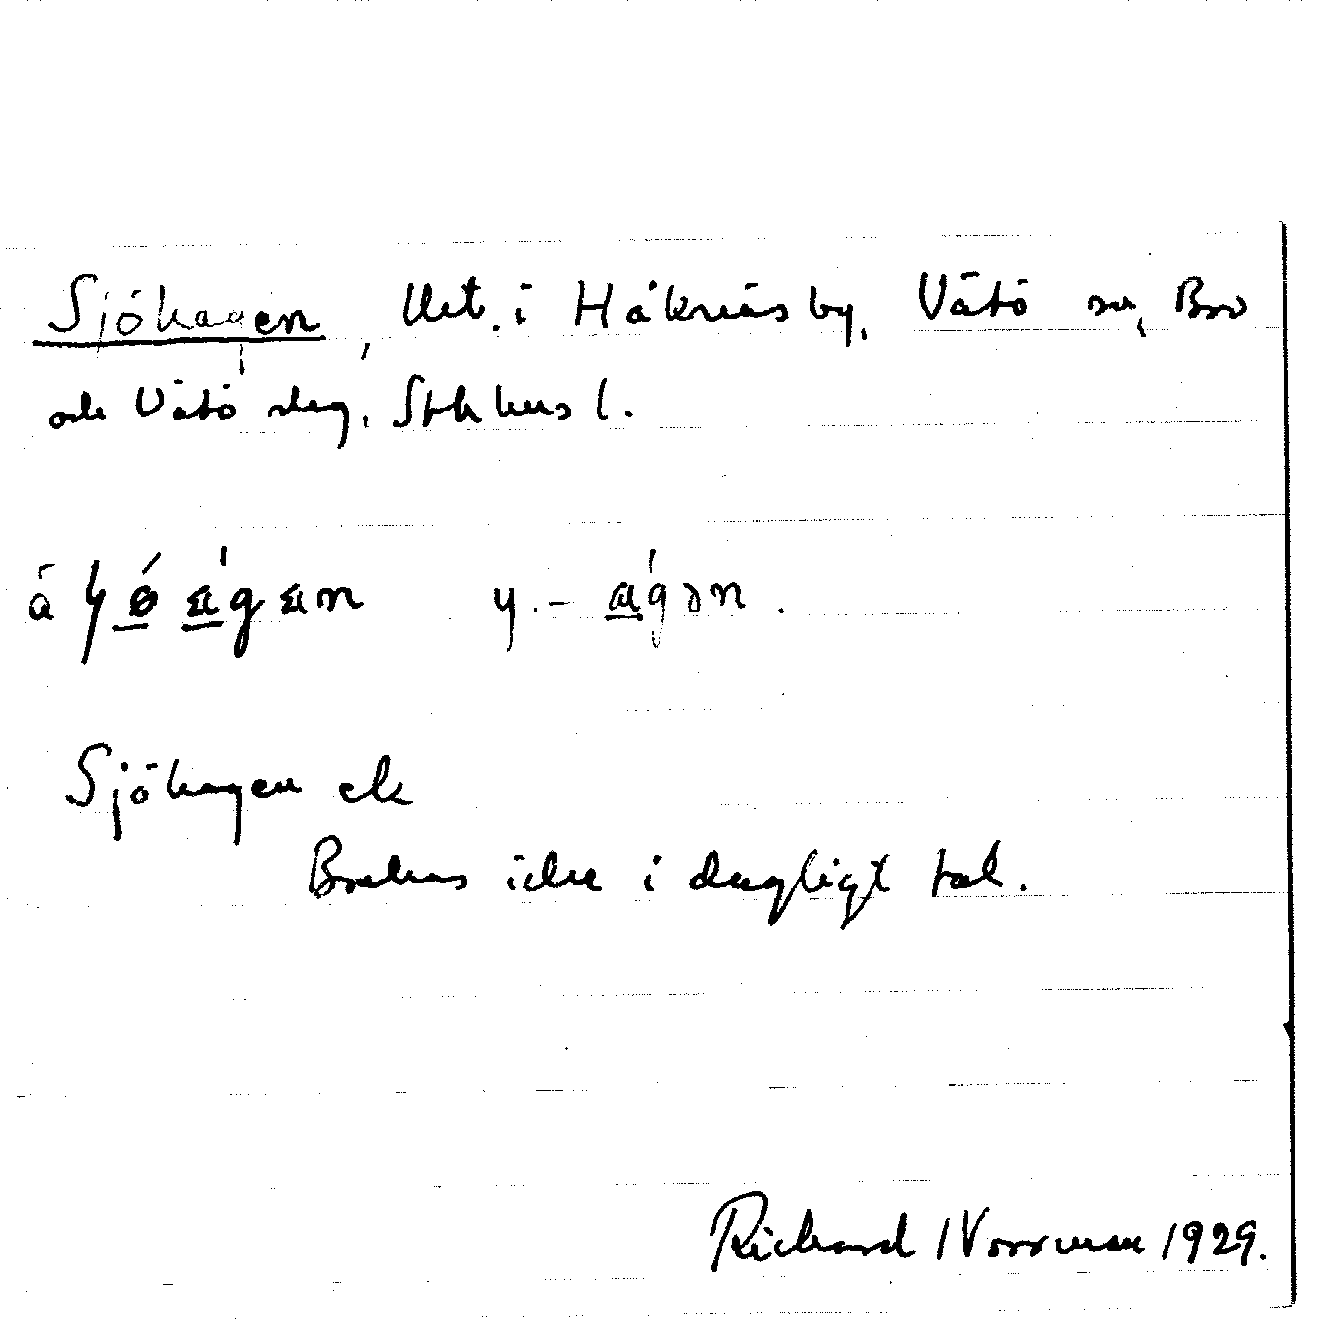 Sjöhagen, Utt. i Håknäsby, Vätö sn, Bro
och Vätö slg, Sthlms l.
Sjöhagen ek
Brukas icke i dagligt tal.
Richard Norrman 1929.